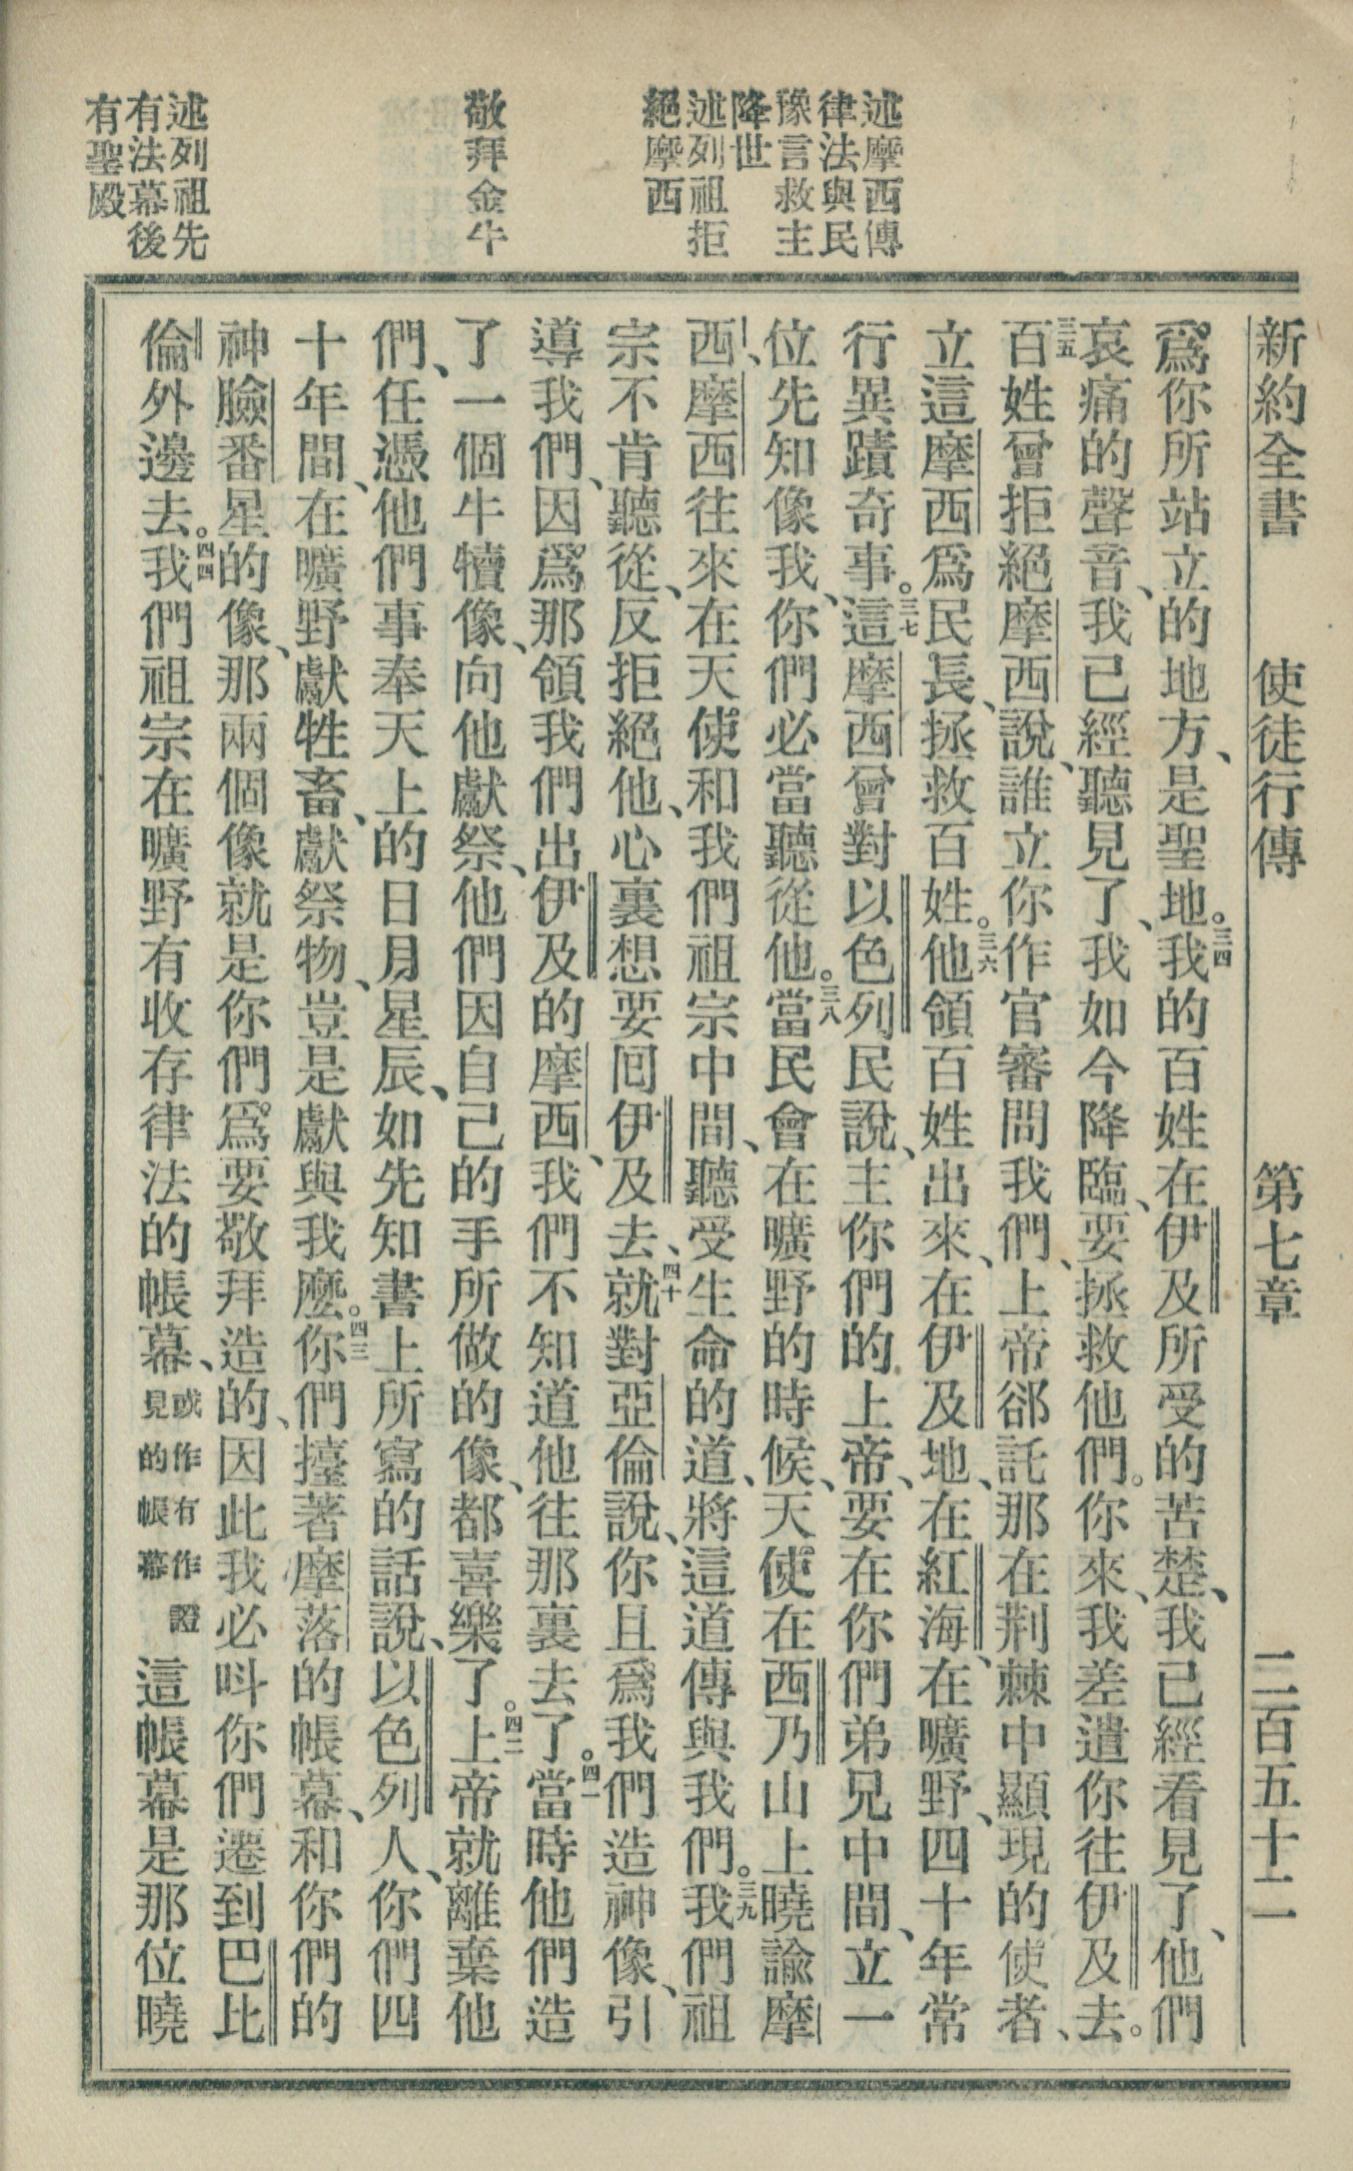 新約全書 使徒行傳 第七章 二百五十二
述摩西傳
律法與民
豫言救主
降世
述列祖拒
絕摩西
敬拜金牛
述列祖先
有法幕後
有聖殿
爲你所站立的地方、是聖地。三四我的百姓在伊及所受的苦楚、我已經看見了、他們
哀痛的聲音、我已經聽見了、我如今降臨、要拯救他們。你來、我差遣你往伊及去。
三五百姓曾拒絕摩西說、誰立你作官審問我們、上帝卻託那在荆棘中顯現的使者、
立這摩西爲民長、拯救百姓。三六他領百姓出來、在伊及地、在紅海、在曠野、四十年常
行異蹟奇事。三七這摩西曾對以色列民說、主你們的上帝、要在你們弟兄中間、立一
位先知像我、你們必當聽從他。三八當民會在曠野的時候、天使在西乃山上曉諭摩
西、摩西往來在天使和我們祖宗中間、聽受生命的道、將這道傳與我們。三九我們祖
宗不肯聽從、反拒絕他、心裏想要囘伊及去、四十就對亞倫說、你且爲我們造神像、引
導我們、因爲那領我們出伊及的摩西、我們不知道他往那裏去了。四一當時他們造
了一個牛犢像、向他獻祭、他們因自己的手所做的像、都喜樂了。四二上帝就離棄他
們、任憑他們事奉天上的日月星辰、如先知書上所寫的話說、以色列人、你們四
十年間、在曠野獻牲畜、獻祭物、豈是獻與我麽。四三你們擡著摩落的帳幕、和你們的
神臉番星的像、那兩個像就是你們爲要敬拜造的、因此我必呌你們遷到巴比
倫外邊去。四四我們祖宗在曠野有收存律法的帳幕、或作有作證見的帳幕這帳幕是那位曉